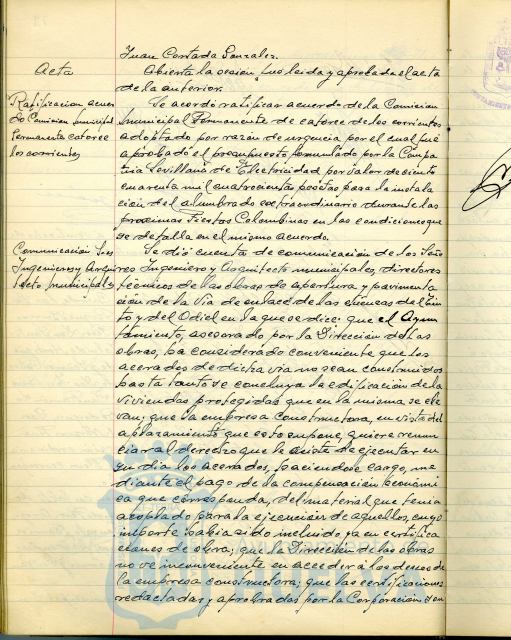 Juan Cortada Gonzalez.
Acta
Abierta la sesión fue leida y aprobada el acta
de la anterior.
Ratificacion acuer
do Comision municipal
Permanente catorce
los corrientes
Se acordó ratificar acuerdo de la Comision
municipal Permanente de catorce de los corrientes
adoptado por razón de urgencia por el cual fué
aprobado el presupuesto formulado por la Compa
ñia Sevillana de Electricidad por valor de ciento
cuarenta mil cuatrocientas pesetas para la instala
ción del alumbrado extraordinario durante las
proximas Fiestas Colombinas en las condiciones que
se detalla en el mismo acuerdo.
Comunicación Sres
Ingenieros y Arqui
tecto municipales
Se dió cuenta de comunicación de los Seño
res Ingeniero y Arquitecto municipales, directores
técnicos de las obras de apertura y pavimenta
ción de la Via de enlace de las cuencas del Tin
to y del Odiel en la que se dice: que el Ayun
tamiento, asesorado por la Dirección de las
obras, ha considerado conveniente que los
acerados de dicha via no sean construidos
hasta tanto se concluya la edificación de la
viviendas protegidas que en la misma se ele
van; que la empresa constructora, en vista del
aplazamiento que esto supone, quiere renun
ciar al derecho que le asiste de ejecutar en
su dia los acerados, haciendose cargo, me
diante el pago de la compensación económi
ca que corresponda, del material que tenia
acoplado para la ejecución de aquellos, cuyo
importe habia sido incluido ya en certifica
ciones de obra; que la Dirección de las obras
no ve inconveniente en acceder a los deseos de
la empresa constructora; que las certificaciones
redactadas y aprobadas por la Corporación y en